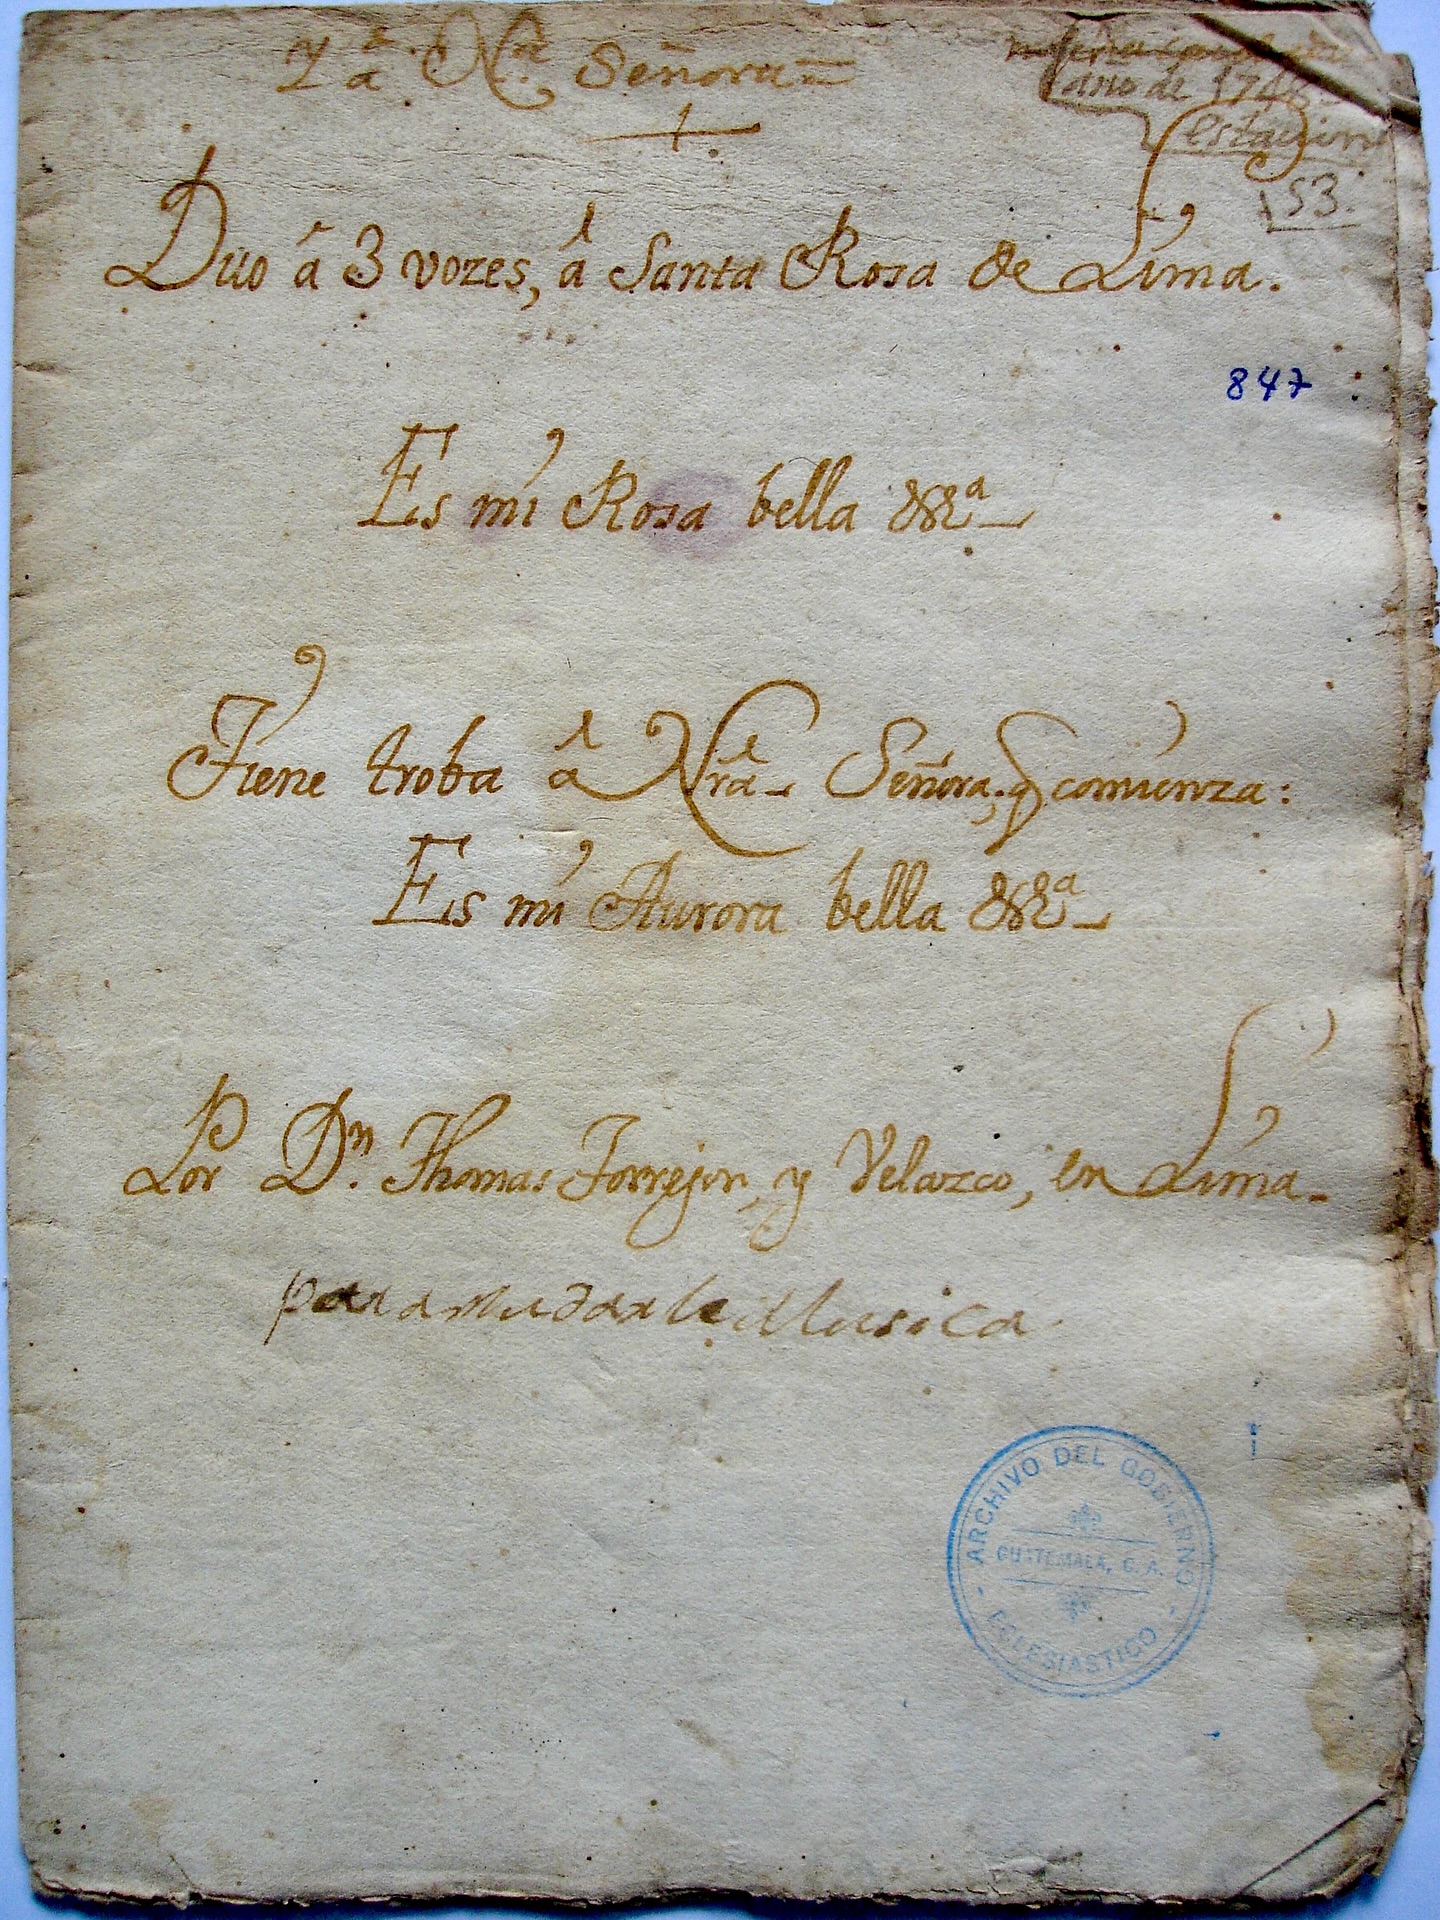 Y â Nrâ Señora
año de 1748
estacion
153.
Duo â 3 vozes, â Santa Rosa de Lima.
847
Es mi Rosa bella &ª
Tiene troba â Nrâ Señora, q comienza:
Es mi Aurora bella &ª
Por Dⁿ. Thomas Torrejon, y Velazco, en Lima.
para mudar le Musica
ARCHIVO DEL GOBIERNO
GUATEMALA, C. A.
ECLESIASTICO